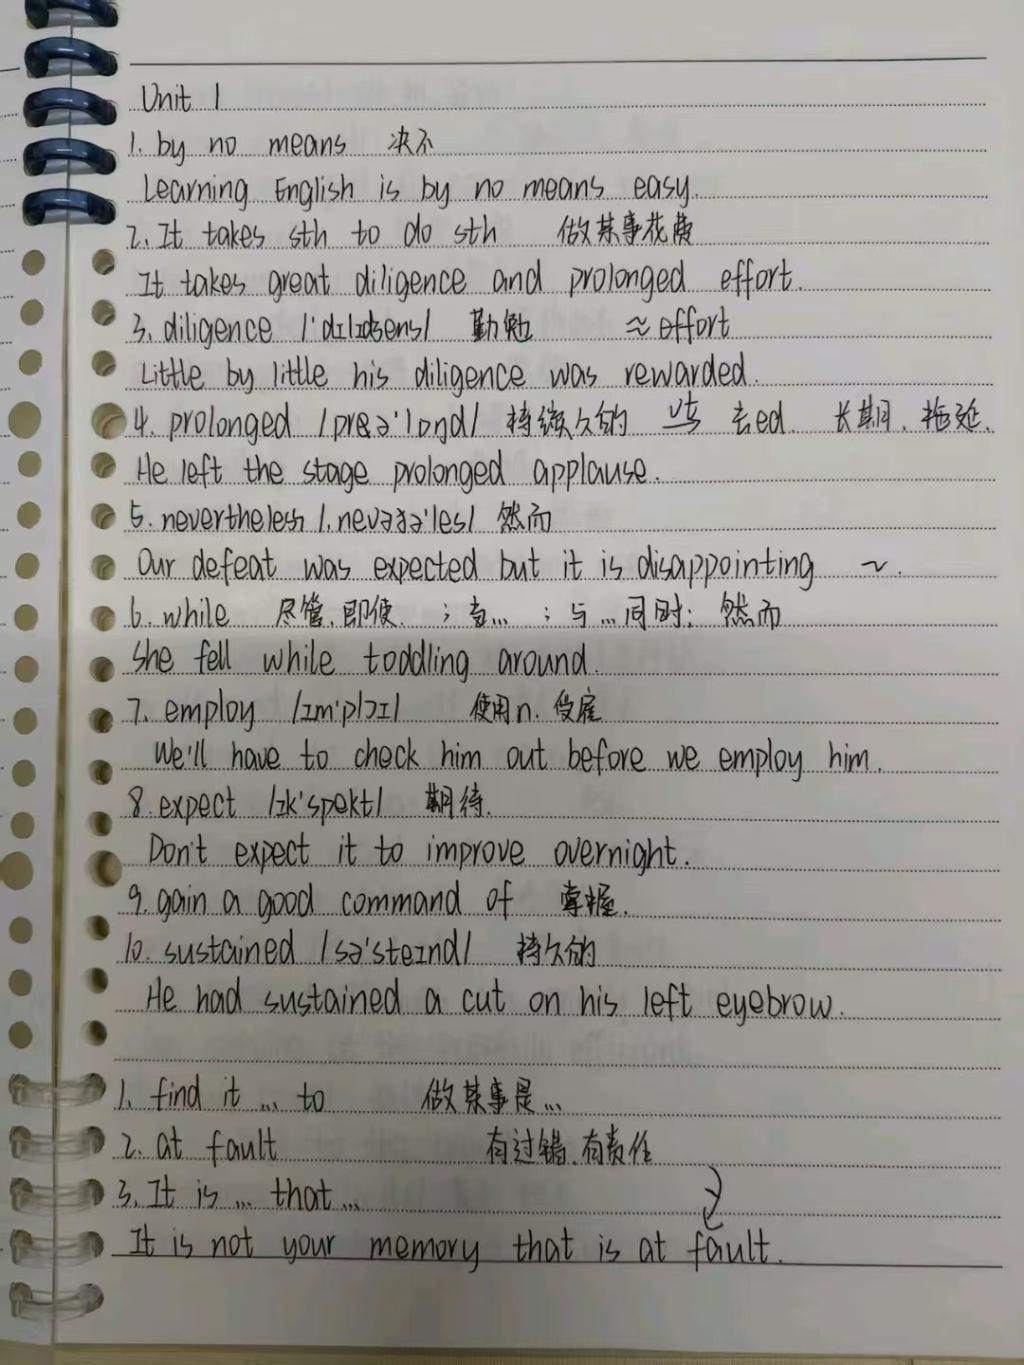 Unit 1
1. by no means 决不
Learning English is by no means easy.
2. It takes sth to do sth 做某事花费
It takes great diligence and prolonged effort.
3. diligence /'dɪlɪdʒens/ 勤勉 ≈ effort
Little by little his diligence was rewarded.
4. prolonged 持续久的 去ed. 长期、拖延.
He left the stage prolonged applause.
5. nevertheless 然而
Our defeat was expected but it is disappointing ~.
6. while 尽管、即使. ; 当... ; 与...同时; 然而
She fell while toddling around.
7. employ /ɪm'plɔɪ/ 使用n. 受雇
We'll have to check him out before we employ him.
8. expect /ɪk'spekt/ 期待.
Don't expect it to improve overnight.
9. gain a good command of 掌握.
10. sustained /sə'steɪnd/ 持久的
He had sustained a cut on his left eyebrow.
1. find it ... to 做某事是...
2. at fault 有过错、有责任
3. It is ... that ...
It is not your memory that is at fault.